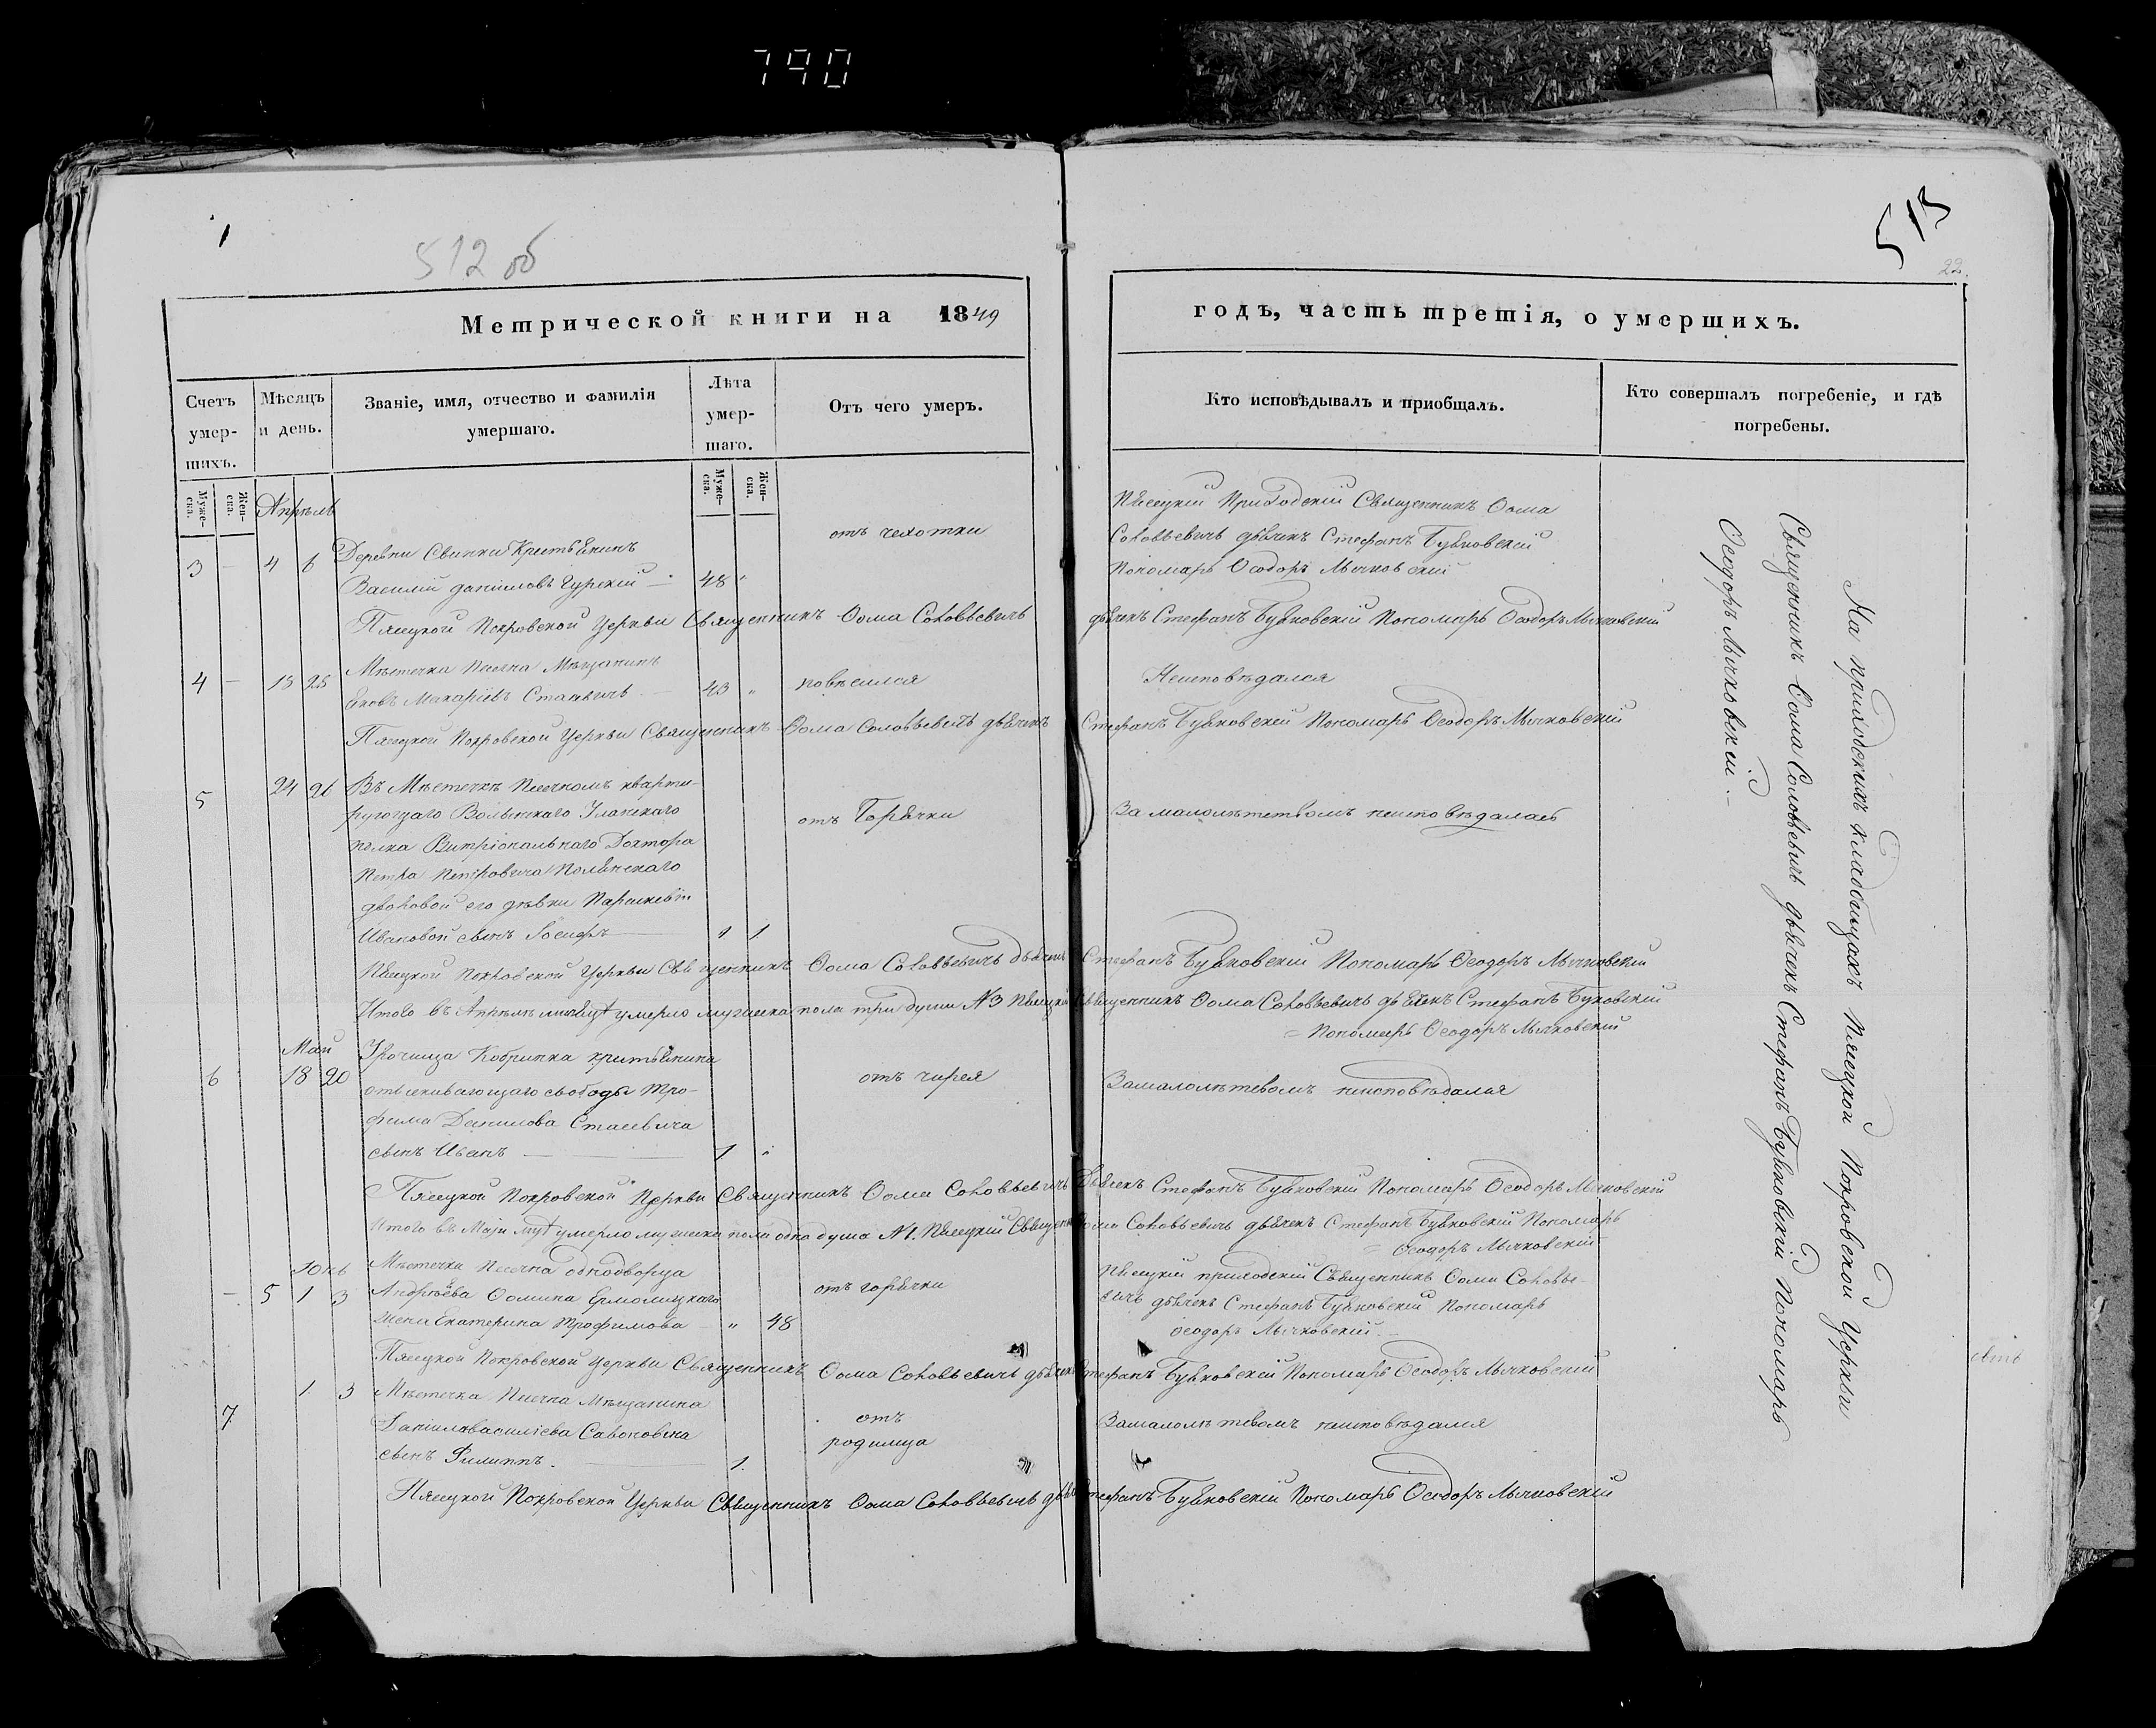 790
1
512 об
513
22.
Метрической книги на 1849
годъ, часть третія, о умершихъ.
Счетъ умер-шихъ.
Мѣсяцъ и день.
Званіе, имя, отчество и фамилія умершаго.
Лѣта умер-шаго.
Отъ чего умеръ.
Кто исповѣдывалъ и приобщалъ.
Кто совершалъ погребеніе, и гдѣ погребены.
Муже-ска.
Жен-ска.
Муже-ска.
Жен-ска.
Апрѣль
3 — 4 6
Деревни Свинки Крестьянинъ
Василий Даніиловъ Гурскій — 48 "
отъ чехотки
Пѣсецкій Приходскій Священникъ Ѳома
Соловьевичъ дьячекъ Стефанъ Буяковскій
Пономарь Ѳеодоръ Мычковскій
Пясецкой Покровской Церкви Священникъ Ѳома Соловьевичъ дьячекъ Стефанъ Буяковскій Пономарь Ѳеодоръ Мычковскій
4 — 13 25
Мѣстечка Песечна Мѣщанинъ
Яковъ Макаріевъ Станевичъ — 43 "
повѣсился
Неисповѣдался
Пясецкой Покровской Церкви Священникъ Ѳома Соловьевичъ дьячекъ Стефанъ Буяковскій Пономарь Ѳеодоръ Мычковскій
5 24 26
Въ Мѣстечкѣ Песечномъ кварти-
рующаго Волынскаго Уланскаго
полка Витріональнаго Доктора
Петра Петровича Полянскаго
дворовой его дѣвки Параскевіи
Ивановой сынъ Іосифъ — 1 1
отъ Горячки
За малолѣтетвомъ неисповѣдалась
Пясецкой Покровской Церкви Священникъ Ѳома Соловьевичъ дьячекъ Стефанъ Буяковскій Пономарь Ѳеодоръ Мычковскій
Итого въ Апрѣлѣ умерло мужеска пола три души №3 Пясецкій Священникъ Ѳома Соловьевичъ дьячекъ Стефанъ Буковскій
= Пономарь Ѳеодоръ Мычковскій
Май
6 18 20
Урочища Кобринка
отыскивающаго свободы Тро-
фима Данилова Стасевича
сынъ Иванъ — 1 "
отъ чирея
Замалолѣтевомъ неисповѣдался
Пясецкой Покровской Церкви Священникъ Ѳома Соловьевичъ Дьячекъ Стефанъ Буяковскій Пономарь Ѳеодоръ Мычковскій
Итого въ Маи умерло мужеска пола одна душа №1. Пясецкій Ѳома Соловьевичъ дьячекъ Стефанъ Буяковскій Пономарь
= Ѳеодоръ Мычковскій
Юнь
— 5 1 3
Мѣстечка Песечна однодворца
Андрѣева Ѳомина Ермолицкаго
жена Екатерина Трофимова — " 48
отъ горячки
Пѣсецкій приходскій Священникъ Ѳома Соловье-
вичъ дьячекъ Стефанъ Буяковскій Пономарь
Ѳеодоръ Мычковскій.
Пясецкой Покровской Церкви Священникъ Ѳома Соловьевичъ дьячекъ Стефанъ Буяковскій Пономарь Ѳеодоръ Мычковскій
7 1 3
Мѣстечка Песечна Мѣщанина
Даніила Василіева
сынъ Филиппъ. — 1.
отъ
родимца
Замалолѣтевомъ неисповѣдался
Пясецкой Покровской Церкви Священникъ Ѳома Соловьевичъ Стефанъ Буяковскій Пономарь Ѳеодоръ Мычковскій
На приходскихъ кладбищахъ Пясецкой Покровской Церкви
Священникъ Ѳома Соловьевичъ дьячекъ Стефанъ Буяковскій Пономарь
Ѳеодоръ Мычковскій. —